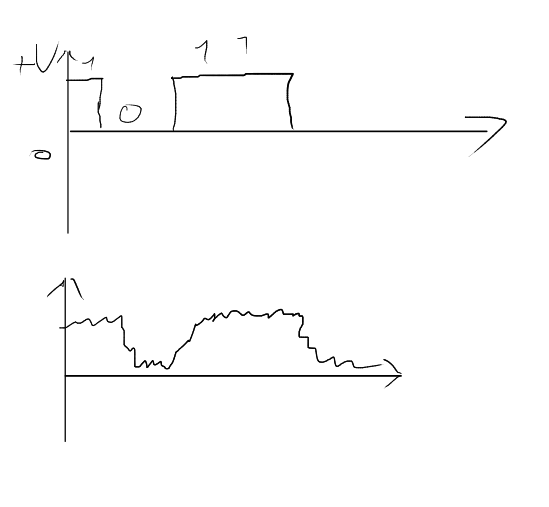 +V 1 0 1 1
0